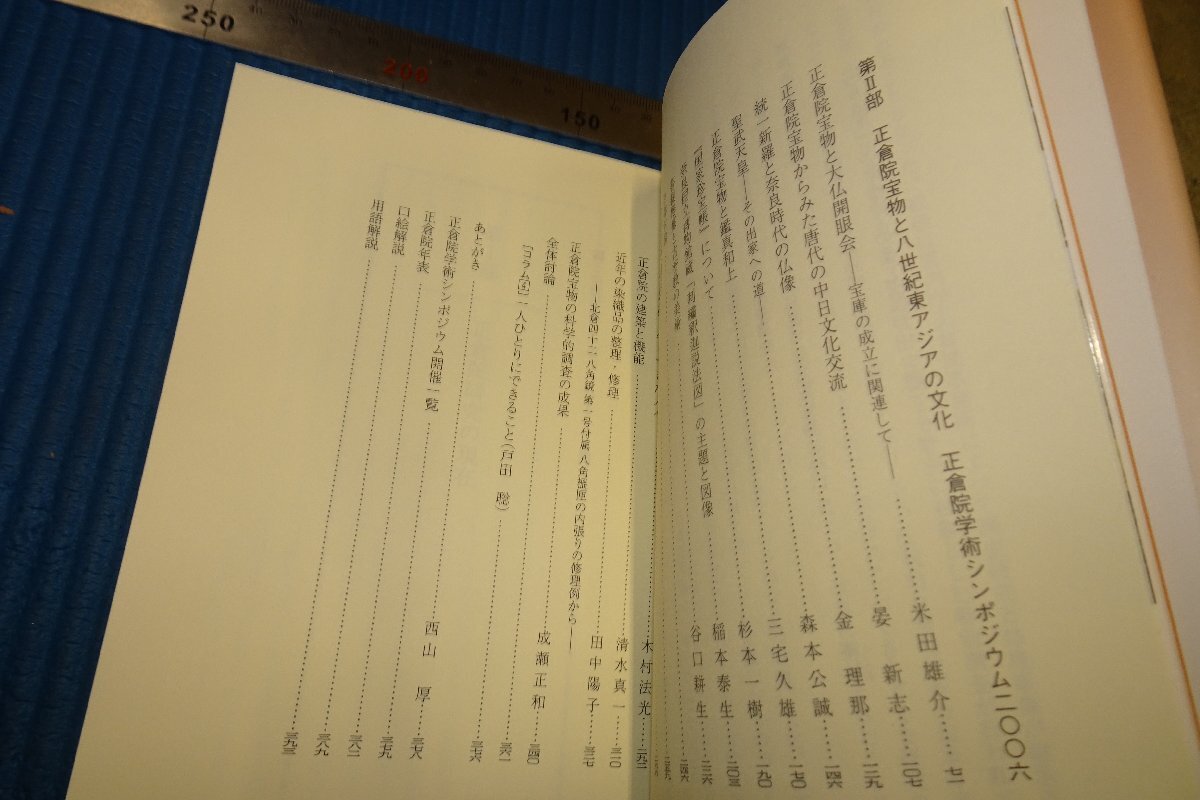 250
200
150
第Ⅱ部 正倉院宝物と八世紀東アジアの文化 正倉院学術シンポジウム二〇〇六
正倉院宝物と大仏開眼会――宝庫の成立に関連して―― 米田雄介 七一
正倉院宝物からみた唐代の中日文化交流 晏 新志 一〇七
統一新羅と奈良時代の仏像 金 理那 一二九
聖武天皇――その出家への道―― 森本公誠 一四六
正倉院宝物と鑑真和上 三宅久雄 一七〇
『国家珍宝帳』について 杉本一樹 一九〇
奈良国立博物館蔵「刺繡釈迦説法図」の主題と図像 稲本泰生 二〇三
谷口耕生 二三六
正倉院の建築と機能 木村法光 二九二
近年の染織品の整理・修理 清水真一 三一〇
――北倉四十二 八角鏡 第一号付属 八角鏡匣の内張りの修理例から―― 田中陽子 三二七
正倉院宝物の科学的調査の成果 成瀬正和 三四〇
全体討論 三六一
〔コラム⑤〕一人ひとりにできること（戸田 聡） 三七六
あとがき 西山 厚 三七八
正倉院学術シンポジウム開催一覧 三七九
正倉院年表 三八二
口絵解説 三八九
用語解説 三九三